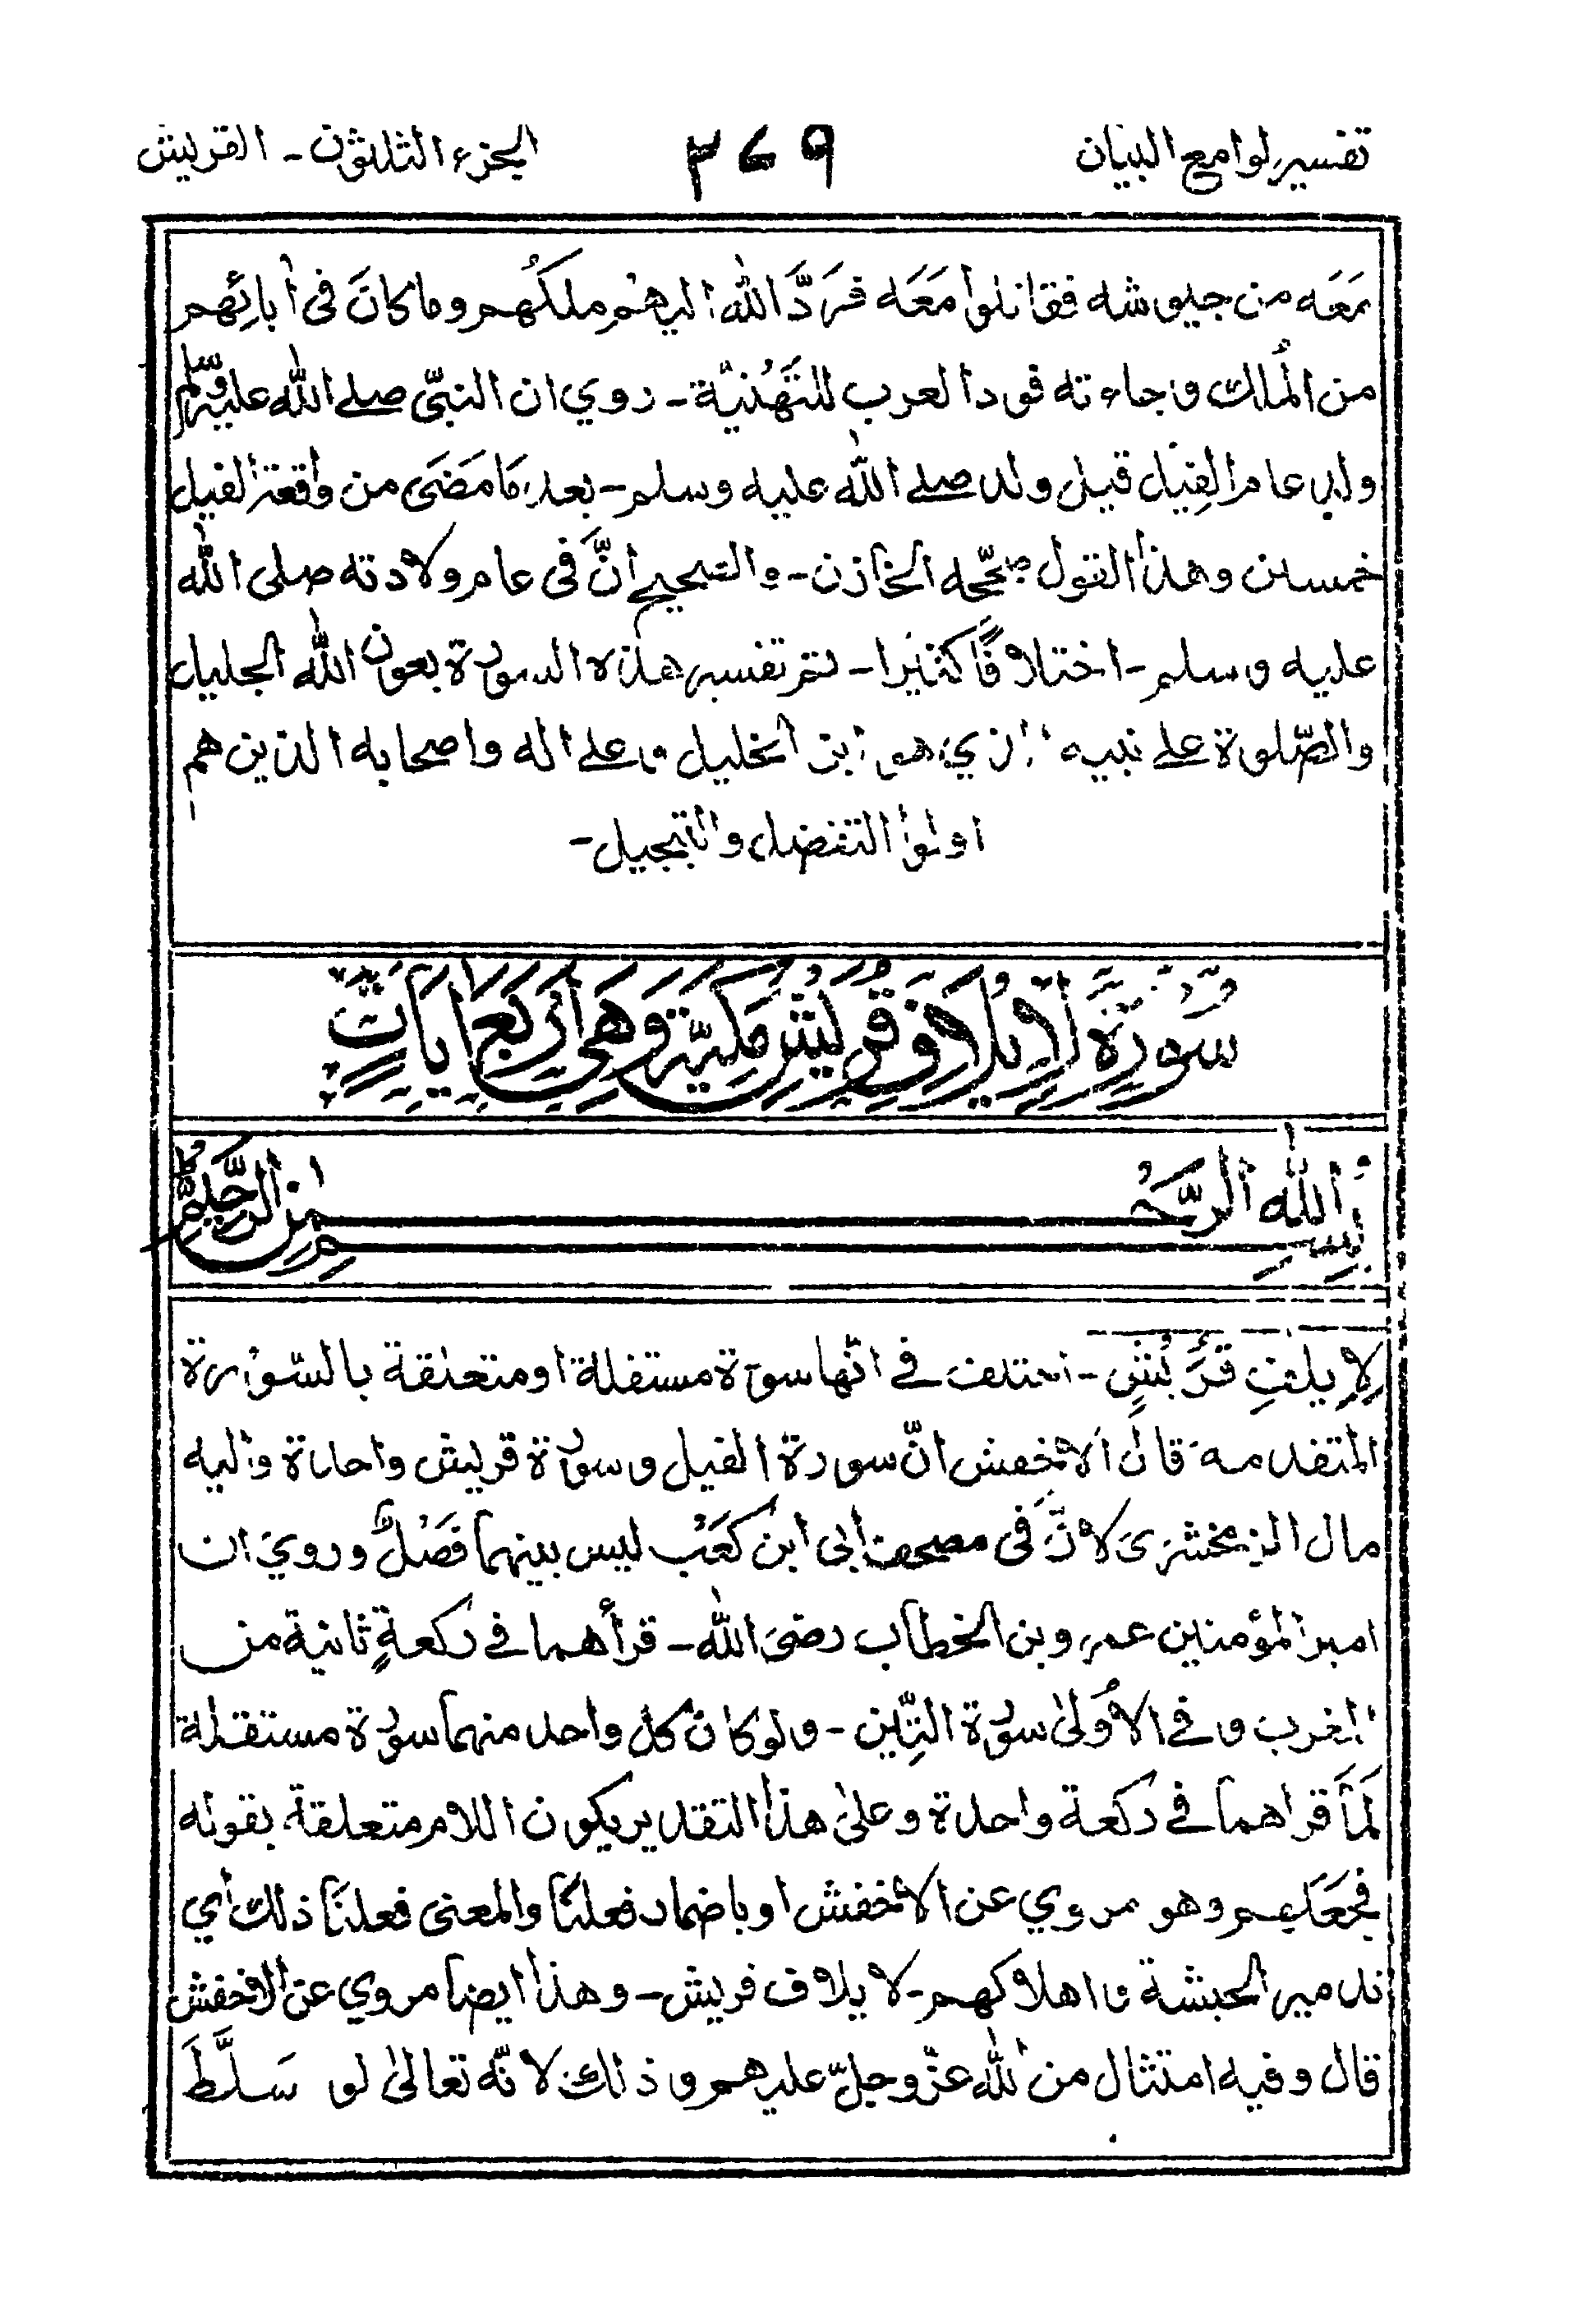 تفسير لوامع البيان ٣٦٩ الجزء الثلثون - القريش
مَعَه من جيوشه فقاتلوا مَعَه فرَدَّ الله اليهم ملكَهُم وما كانَ في أبائِهم
من المُلك وجاءته قود العرب للتَهْنيّة - روي ان النبيّ صلے الله عليه وسلم
ولد عام الفِيْل قيل ولد صلے الله عليه وسلم - بعد مَا مَضَى من واقعة الفيل
خمسين وهذا القول صحّحه الخازن - والصحيح انَّ في عام ولادته صلى الله
عليه وسلم - اختلافًا كثيرا - تم تفسير هذه السورة بعون الله الجليل
والصّلوة علے نبيه الذي هو ابن الخليل وعلے اله واصحابه الذين هم
اولوا التفضل والتبجيل -
سُورَةُ لِإِيْلَافِ قُرَيْشٍ مَكِيَّةٌ وَهِيَ اَرْبَعُ اٰيَاتٍ
بِسْمِ اللهِ الرَّحْمٰنِ الرَّحِيْمِ
لِإِيلٰفِ قُرَيْشٍ - اختلف في انّها سورة مستقلة او متعلقة بالسّورة
المتقدمة قال الاخفش انّ سورة الفيل وسورة قريش واحدة واليه
مال الزمخشرى لانَّ في مصحف أبى ابن كعَب ليس بينهما فَصْلٌ وروي ان
امير المؤمنين عمر وبن الخطاب رضى الله - قرأهما في ركعةٍ ثانية من
المغرب وفي الأولىٰ سورة التِّين - ولو كان كل واحد منهما سورة مستقلة
لَمَا قراهما في ركعة واحدة وعلىٰ هذا التقدير يكون اللام متعلقة بقوله
فجَعَلهم وهو مروي عن الاخفش او باضمار فعلنَا والمعنى فعلنَا ذلك أي
تدمير الحبشة واهلاكهم - لايلاف قريش - وهذا ايضا مروي عن الاخفش
قال وفيه امتثال من الله عزّ وجلّ عليهم وذلك لانّه تعالىٰ لو سَلَّطَ